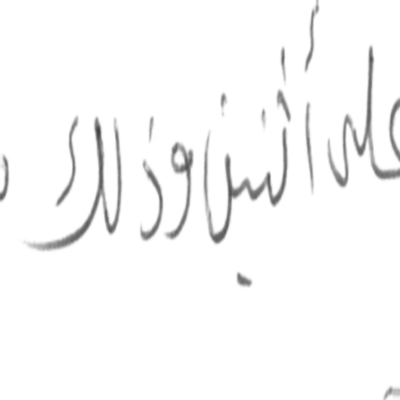 على أثنين وذلك